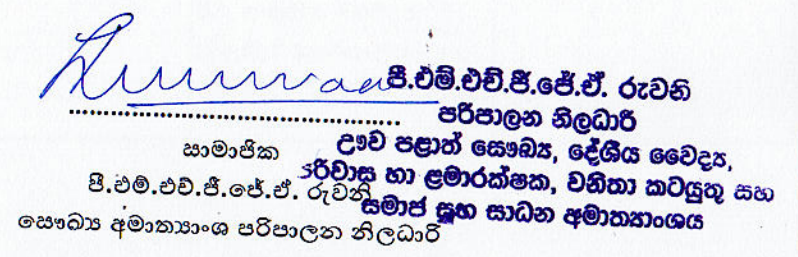 පී.එම්.එච්.ජී.ජේ.ඒ. රුවනි
පරිපාලන නිලධාරී
ඌව පළාත් සෞඛ්‍ය, දේශීය වෛද්‍ය,
පරිවාස හා ළමාරක්ෂක, වනිතා කටයුතු සහ
සමාජ සුභ සාධන අමාත්‍යාංශය
සාමාජික
පී.එම්.එච්.ජී.ජේ.ඒ. රුවනි
සෞඛ්‍ය අමාත්‍යාංශ පරිපාලන නිලධාරි